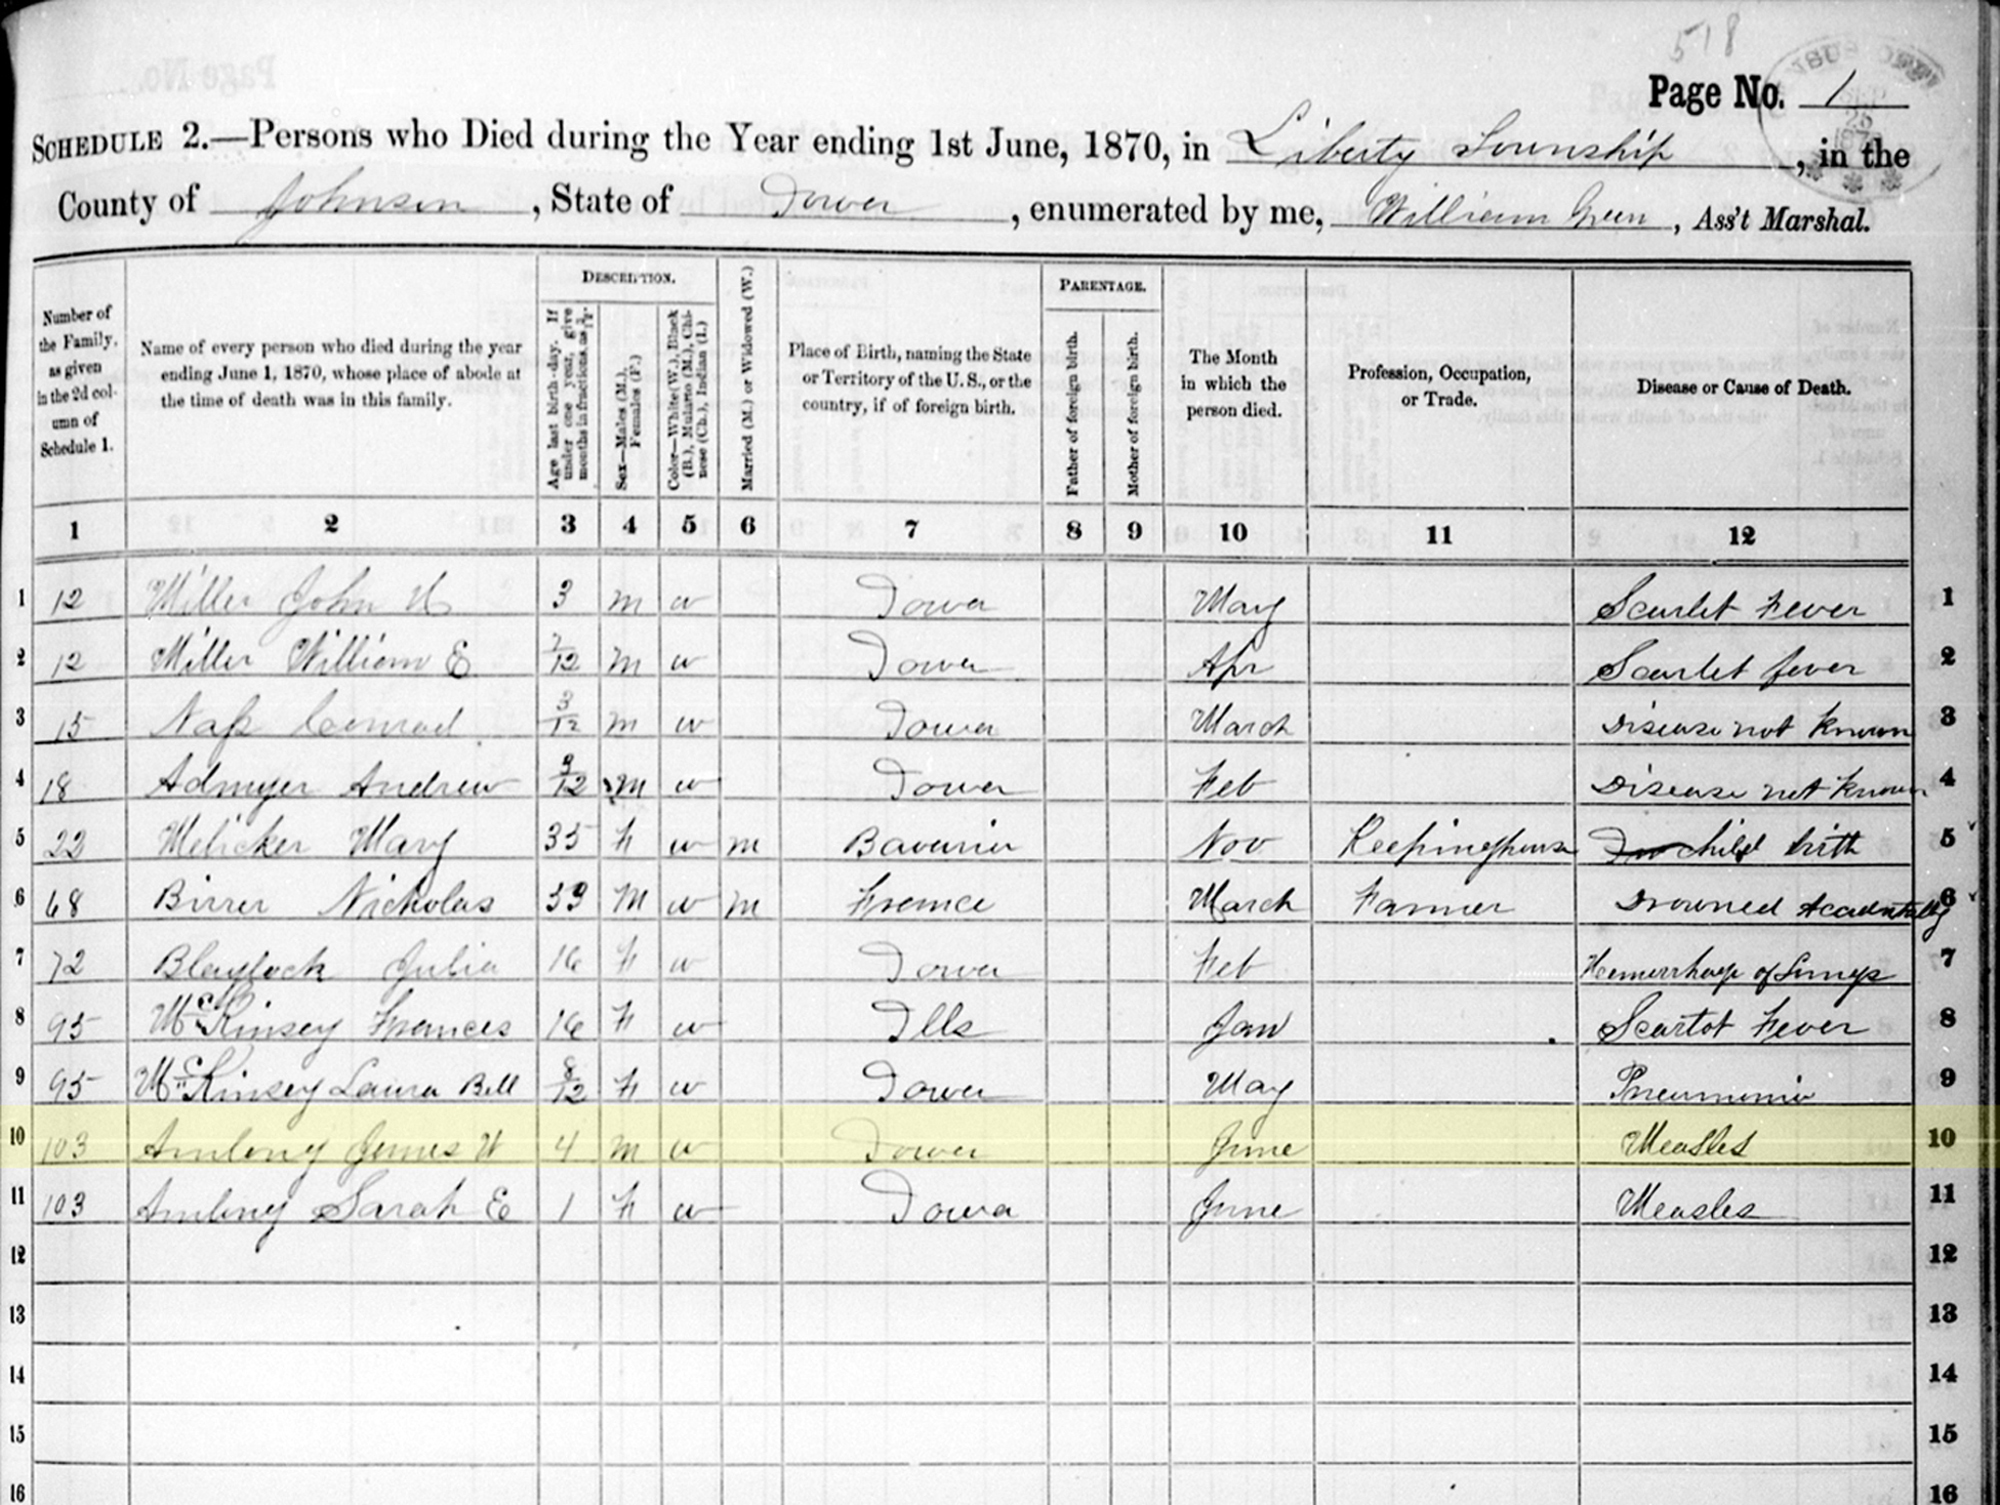 518
Page No. 1
SCHEDULE 2.—Persons who Died during the Year ending 1st June, 1870, in Liberty Township, in the
County of Johnson, State of Iowa, enumerated by me, William Green, Ass't Marshal.
Number of the Family, as given in the 2d column of Schedule 1.
Name of every person who died during the year ending June 1, 1870, whose place of abode at the time of death was in this family.
DESCRIPTION.
Age last birth-day. If under one year, give months in fractions, as 3/12.
Sex—Males (M.), Females (F.)
Color—White (W.), Black (B.), Mulatto (M.), Chinese (Ch.), Indian (I.)
Married (M.) or Widowed (W.)
Place of Birth, naming the State or Territory of the U. S., or the country, if of foreign birth.
PARENTAGE.
Father of foreign birth.
Mother of foreign birth.
The Month in which the person died.
Profession, Occupation, or Trade.
Disease or Cause of Death.
1 2 3 4 5 6 7 8 9 10 11 12
1 12 Miller John 3 m w Iowa May Scarlet Fever 1
2 12 Miller William E 7/12 m w Iowa Apr Scarlet fever 2
3 15 Nass Conrad 3/12 m w Iowa March Disease not Known 3
4 18 Admyer Andrew 9/12 m w Iowa Feb Disease not Known 4
5 22 Melicker Mary 35 F w m Bavaria Nov Keepinghouse In child birth 5
6 68 Birrer Nicholas 39 M w m France March Farmer Drowned Accidentally 6
7 72 Blaylock Julia 16 F w Iowa Feb Hemorrhage of Lungs 7
8 95 McKinsey Frances 16 F w Ills Jan Scartot Fever 8
9 95 McKinsey Laura Bell 8/12 F w Iowa May Pneumonia 9
10 103 Amlong James W 4 m w Iowa June Measles 10
11 103 Amlong Sarah E 1 F w Iowa June Measles 11
12 12
13 13
14 14
15 15
16 16